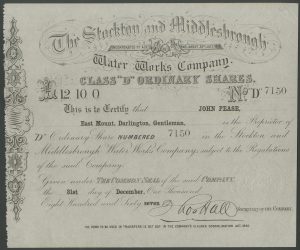 The Stockton and Middlesbrough
Water Works Company.
CLASS "D" ORDINARY SHARES.
£12 10 0 No. D 7150
This is to Certify that JOHN PEASE,
East Mount, Darlington, Gentleman, is the Proprietor of
"D" Ordinary Share NUMBERED 7150 in the Stockton and
Middlesbrough Water Works Company, subject to the Regulations
of the said Company.
Given under The Common Seal of the said COMPANY
the 31st day of December, One Thousand
Eight Hundred and Sixty seven.
SECRETARY OF THE COMPANY.